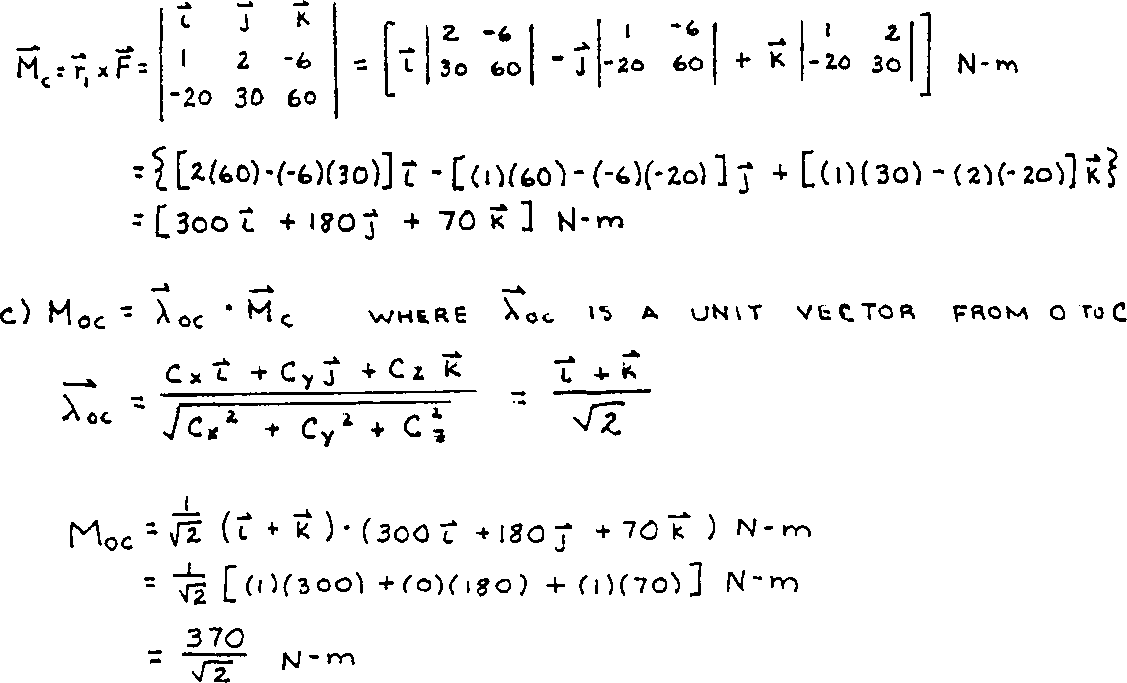 M⃗c = r⃗₁ × F⃗ = | i⃗ j⃗ k⃗ | 1 2 -6 | -20 30 60 | = [ i⃗ | 2 -6 | 30 60 | - j⃗ | 1 -6 | -20 60 | + k⃗ | 1 2 | -20 30 | ] N-m
= {[2(60)-(-6)(30)] i⃗ - [(1)(60)-(-6)(-20)] j⃗ + [(1)(30)-(2)(-20)] k⃗}
= [300 i⃗ + 180 j⃗ + 70 k⃗] N-m
c) Moc = λ⃗oc · M⃗c WHERE λ⃗oc IS A UNIT VECTOR FROM O TO C
λ⃗oc = (Cx i⃗ + Cy j⃗ + Cz k⃗) / √(Cx² + Cy² + Cz²) = (i⃗ + k⃗) / √2
Moc = 1/√2 (i⃗ + k⃗) · (300 i⃗ + 180 j⃗ + 70 k⃗) N-m
= 1/√2 [(1)(300) + (0)(180) + (1)(70)] N-m
= 370/√2 N-m